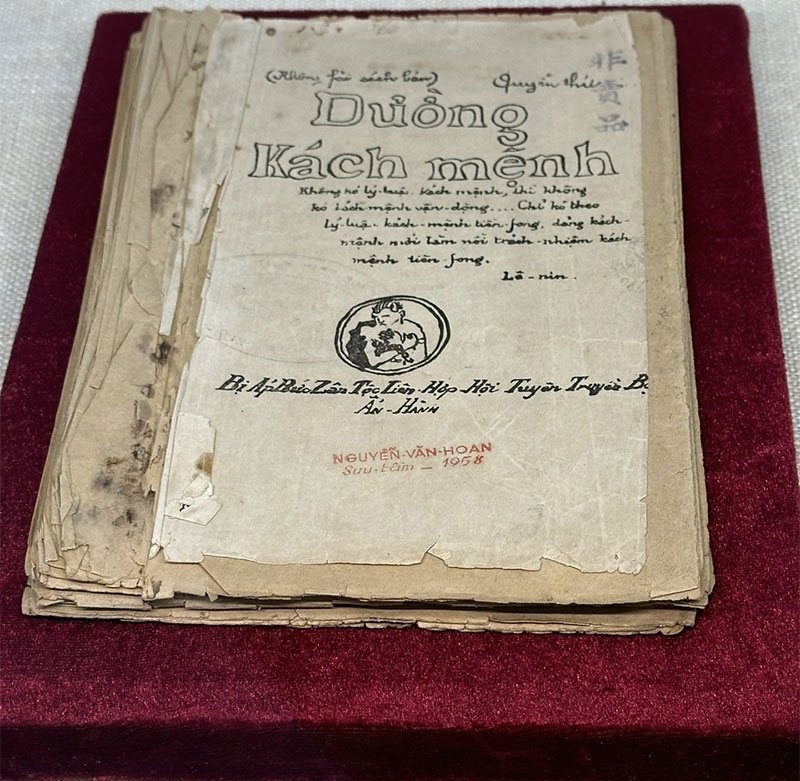 (Không fải sách bán)
Quyển thứ
非賣品
Đường
Kách mệnh
Không kó lý-luận kách mệnh, thì không
kó kách mệnh vận-động.... Chỉ kó theo
lý-luận kách-mệnh tiền-fong, đảng kách-
mệnh mới làm nổi trách-nhiệm kách
mệnh tiền-fong.
Lê-nin.
Bị Áp Bức Zân Tộc Liên-Hợp-Hội Tuyên Truyền Bộ
Ấn-Hành
NGUYỄN-VĂN-HOAN
Sưu-tầm - 1958